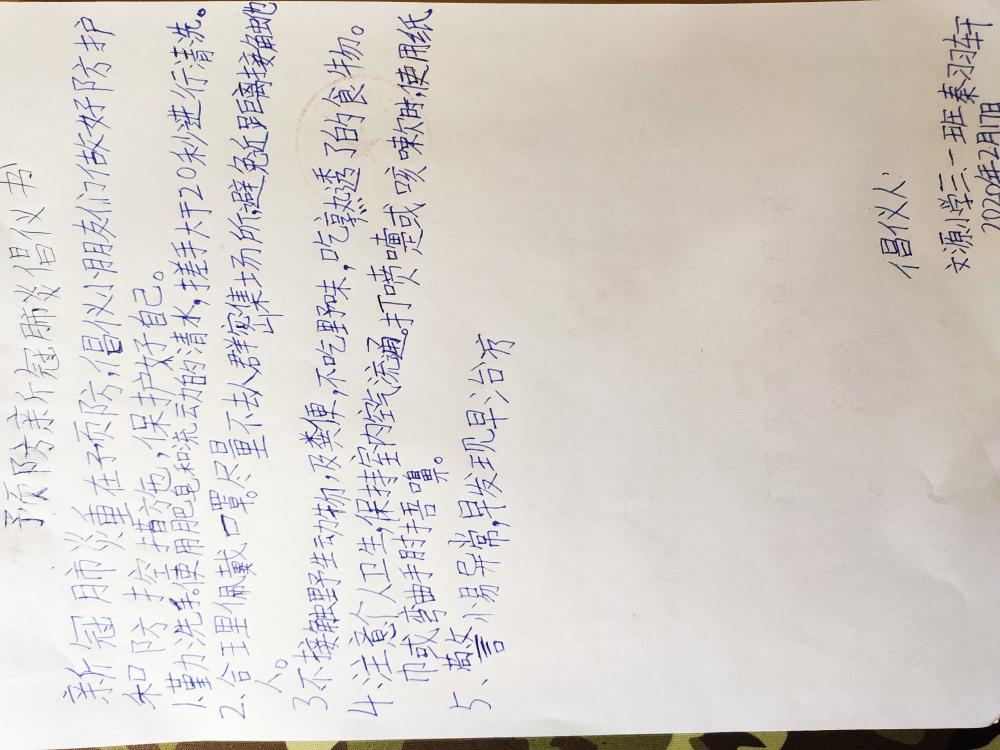 预防新冠肺炎倡仪书
新冠肺炎重在预防,倡仪小朋友们做好防护
和防控措施,保护好自己。
1.勤洗手。使用肥皂和流动的清水,搓手大于20秒进行清洗。
2、合理佩戴口罩。尽量
量不去人群密集场所,避免近距离接触他
人。
3不接触野生动物,及粪便,不吃野味,吃熟透了的食物。
4.注意个人卫生,保持室内空气流通。打喷嚏或咳嗽时,使用纸
巾或弯曲手肘捂嘴鼻。
5、警惕异常,早发现早治疗
倡仪人:
文源小学三一班秦羽轩
2020年2月17日